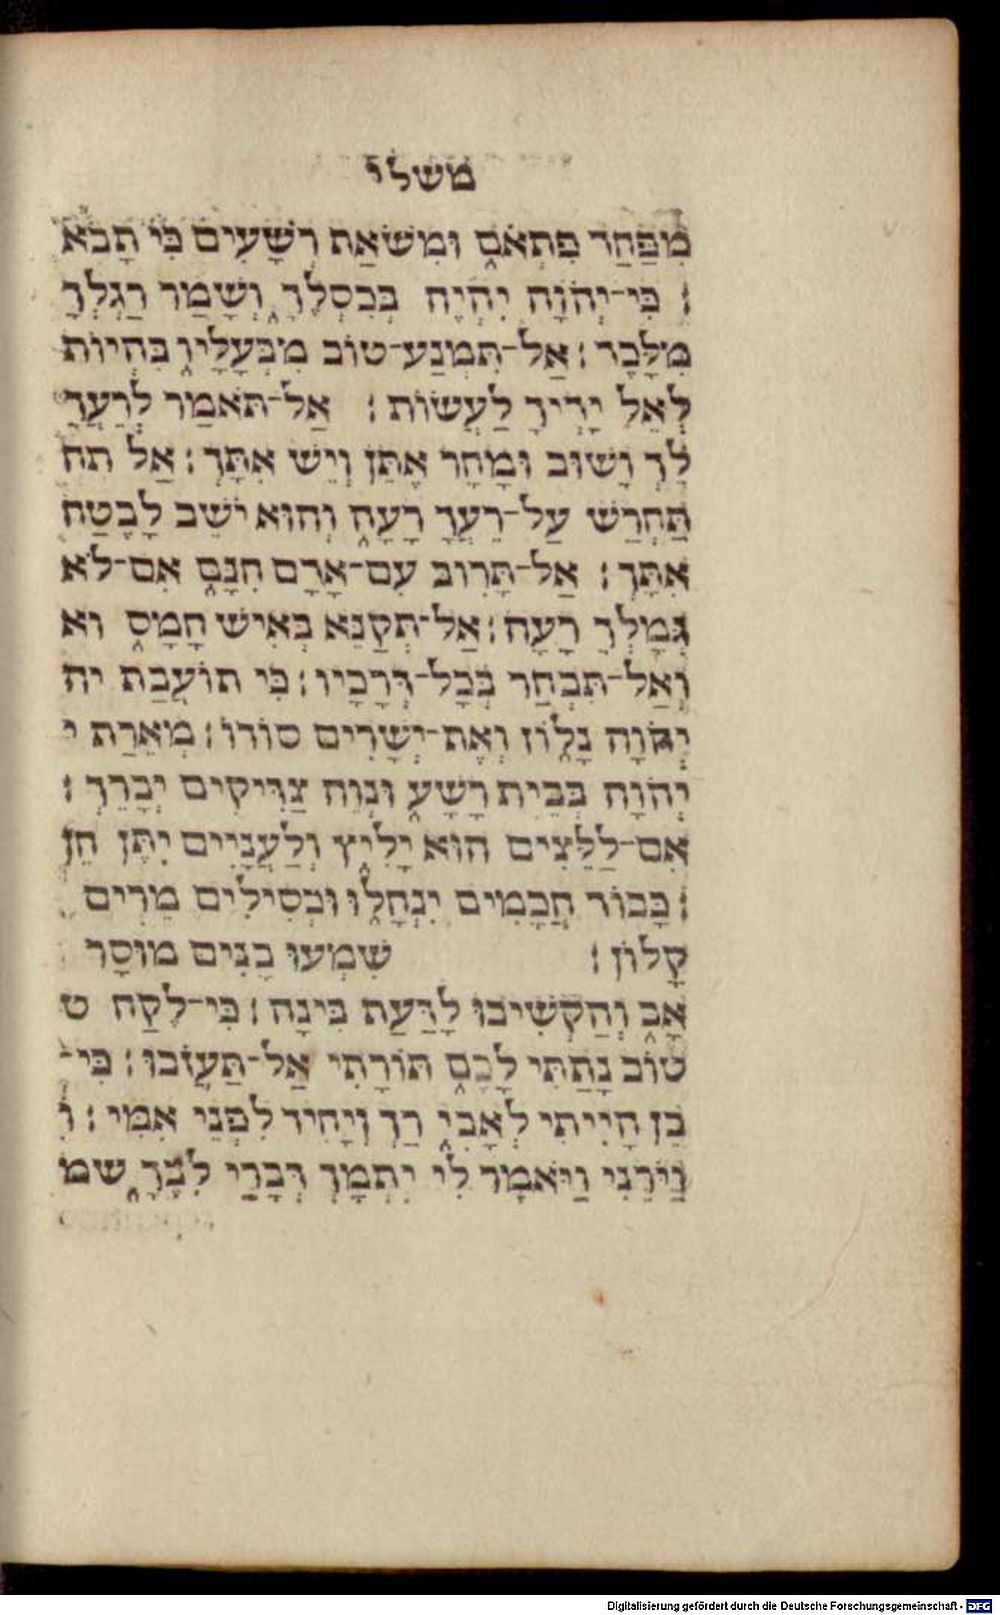 משלי
מִפַּחַד פִּתְאֹ֑ם וּמִשֹּׁאַת רְשָׁעִים כִּי תָבֹא
׃ כִּי־יְהֹוָה יִהְיֶה בְכִסְלֶךָ֑ וְשָׁמַר רַגְלְךָ
מִלָּכֶד ׃ אַל־תִּמְנַע־טוֹב מִבְּעָלָי֑ו בִּהְיוֹת
לְאֵל יָדְיךָ לַעֲשׂוֹת ׃ אַל־תֹּאמַר לְרֵעֲךָ
לֵךְ וָשׁוּב וּמָחָר אֶתֵּן וְיֵשׁ אִתָּךְ ׃ אַל תח
תַּחְרֹשׁ עַל־רֵעֲךָ רָעָ֑ה וְהוּא יֹשֵׁב לָבֶטַח
אִתָּךְ ׃ אַל־תָּרִוב עִם־אָדָם חִנָּ֑ם אִם־לֹא
גְמָלְךָ רָעָה ׃ אַל־תְּקַנֵּא בְּאִישׁ חָמָ֑ס וא
וְאַל־תִּבְחַר בְּכָל־דְּרָכָיו ׃ כִּי תוֹעֲבַת יה
יְהֹוָה נָל֑וֹז וְאֶת־יְשָׁרִים סוֹדוֹ ׃ מְאֵרַת י
יְהֹוָה בְּבֵית רָשָׁ֑ע וּנְוֵה צַדִּיקִים יְבָרֵךְ ׃
אִם־לַלֵּצִים הוּא יָלִ֑יץ וְלַעֲנָיִים יִתֶּן חֵן
׃ כָּבוֹד חֲכָמִים יִנְחָ֑לוּ וּכְסִילִים מֵרִים
קָלוֹן ׃ שִׁמְעוּ בָנִים מוּסַר
אָ֑ב וְהַקְשִׁיבוּ לָדַּעַת בִּינָה ׃ כִּי־לֶקַח ט
טוֹב נָתַתִּי לָכֶ֑ם תּוֹרָתִי אַל־תַּעֲזֹבוּ ׃ כִּי־
בֵן הָיִיתִי לְאָבִ֑י רַךְ וְיָחִיד לִפְנֵי אִמִּי ׃ ו
וַיֹּרֵנִי וַיֹּאמֶר לִי יִתְמָךְ דְּבָרַי לִבֶּךָ֑ שמ